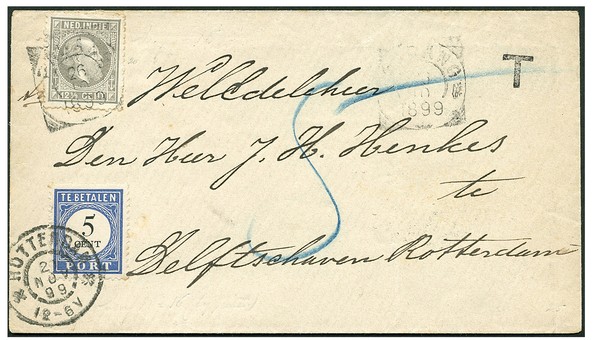 NED. INDIE
12½ CENT
26
1899
T
1899
Weledelheer
Den Heer J. H. Henkes
te
Delftschaven Rotterdam
5
TE BETALEN
5
CENT
PORT
ROTTE
NOV
99
12-6V